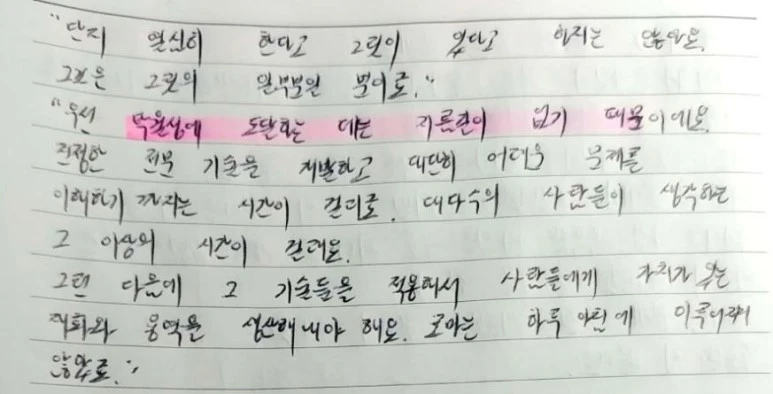 "단지 열심히 한다고 그것이 있다고 하지는 않아요.
그것은 그것의 일부분일 뿐이로."
"우선 탁월성에 도달하는 데는 지름길이 없기 때문이에요.
진정한 전문 기술을 개발하고 대단히 어려운 문제를
이해하기 까지는 시간이 걸리로. 대다수의 사람들이 생각하는
그 이상의 시간이 걸려요.
그런 다음에 그 기술들을 적용해서 사람들에게 가치가 있는
재화와 용역을 생산해 내야 해요. 로마는 하루 아침에 이루어지지
않았로."